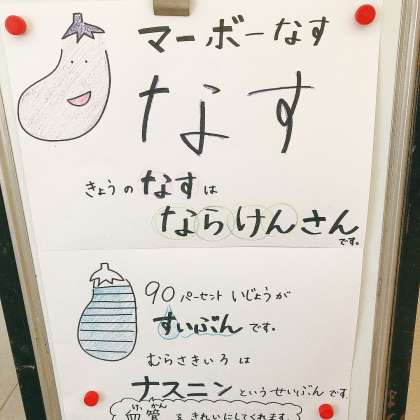 マーボーなす
なす
きょうの なす は
ならけんさん
です。
90 パーセント いじょうが
すいぶん です。
むらさきいろ は
ナスニン というせいぶんです。
けっかん
血管 をきれいにしてくれます。